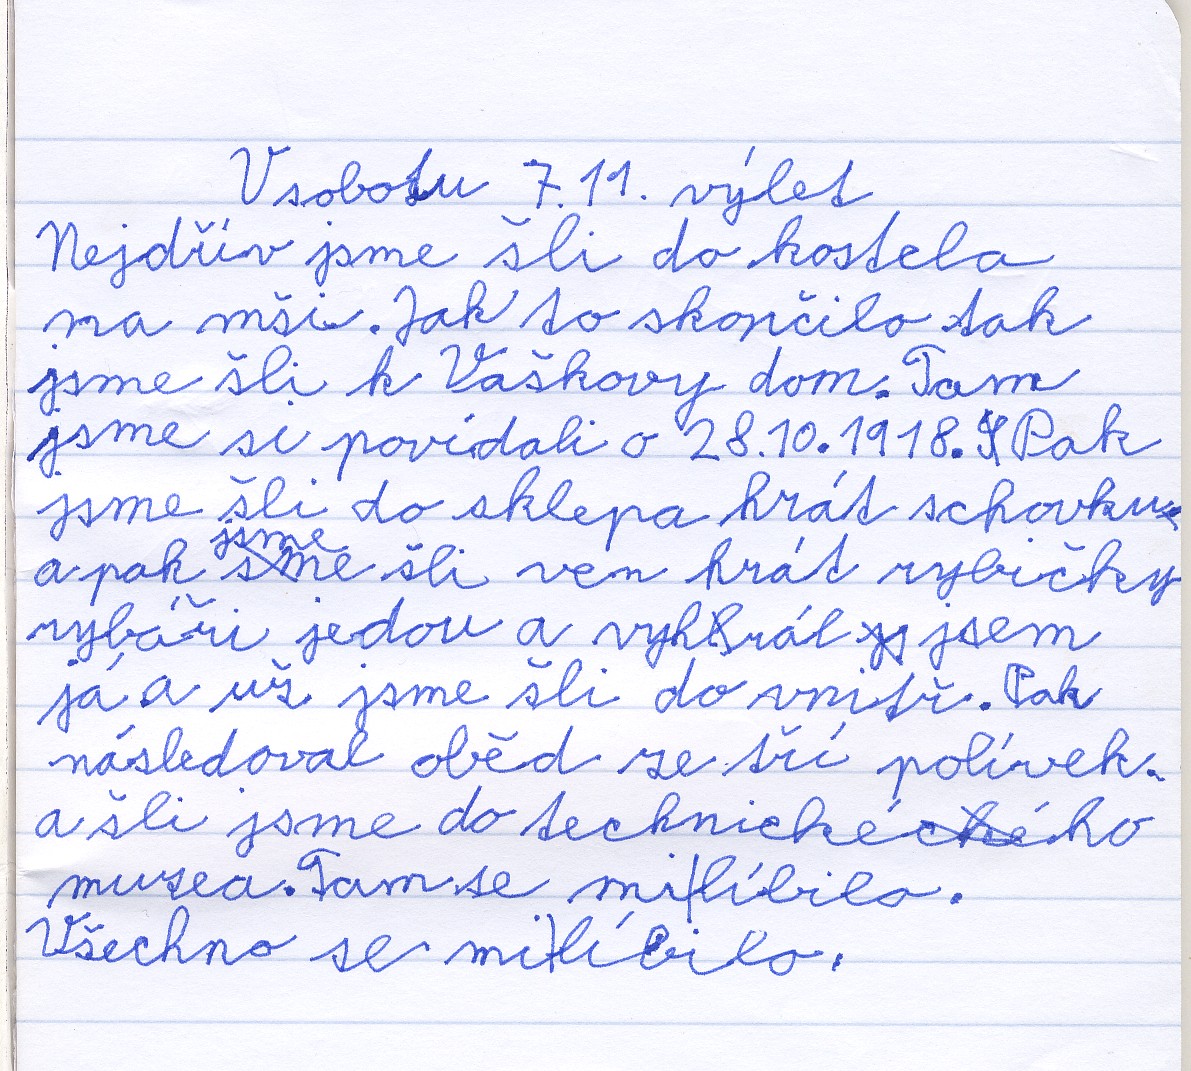 V sobotu 7.11. výlet
Nejdřív jsme šli do kostela
na mši. Jak to skončilo tak
jsme šli k Vaškovy dom. Tam
jsme si povídali o 28.10.1918. Pak
jsme šli do sklepa hrát schovku
a pak jsme šli ven hrát rybičky
rybáři jedou a vyhrál jsem
já a už jsme šli do vnitř. Pak
následoval oběd ze tří polívek.
a šli jsme do technického
muzea. Tam se mi líbilo.
Všechno se mi líbilo.